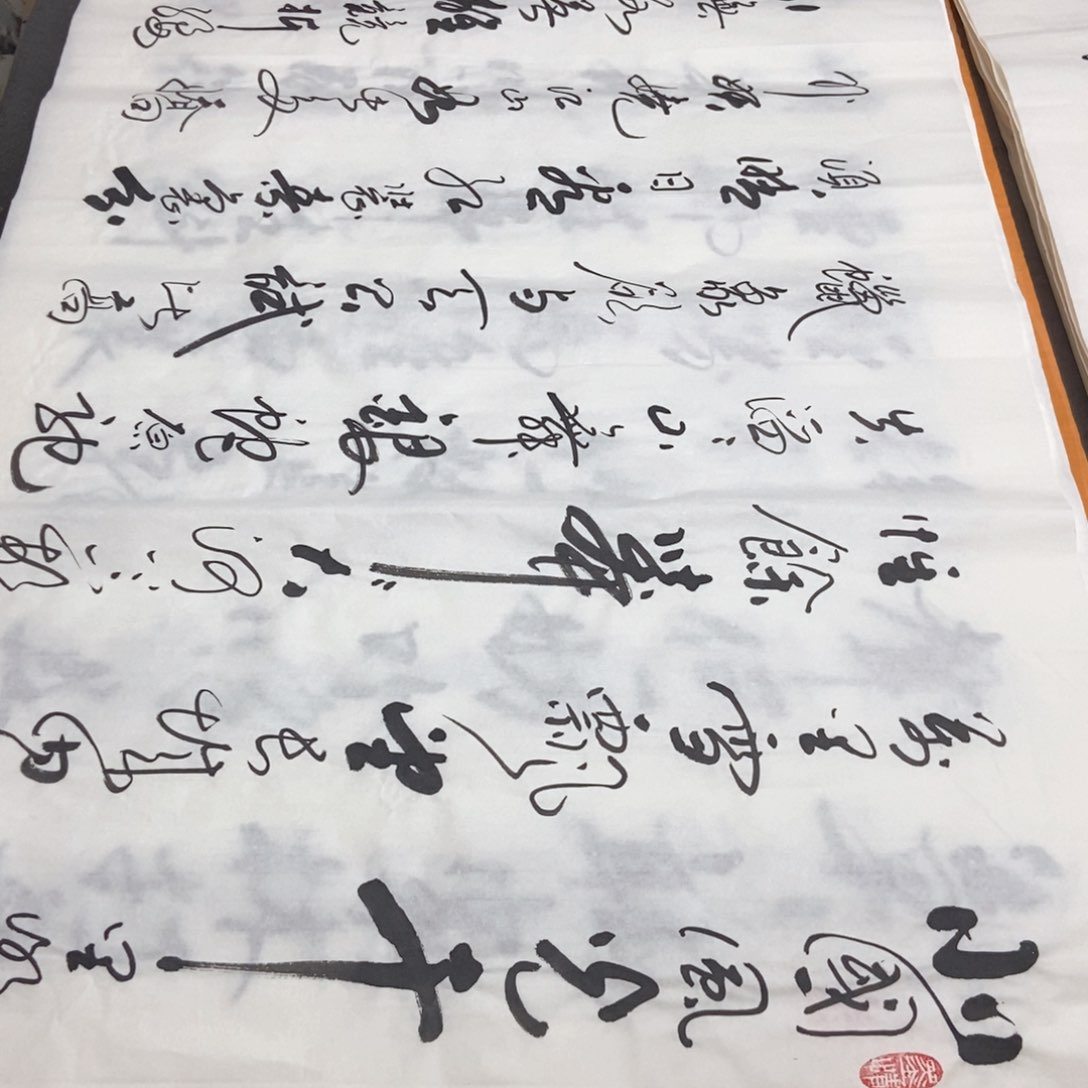 北國風光千里冰
萬里雪飄望長城內
惟餘莽莽大河上下頓
失滔滔山舞銀蛇原馳
蠟象欲與天公試比高
須晴日看紅裝素裹分
外妖嬈江山如此多嬌
引無數英雄競折腰